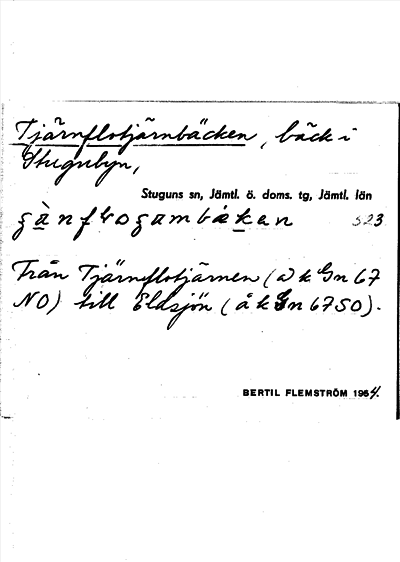 Tjärnflotjärnbäcken, bäck i
Stugubyn,
Stuguns sn, Jämtl. ö. doms. tg, Jämtl. län
523
Från Tjärnflotjärnen (å k Gn 67
NO) till Eldsjön (å k Gn 67 SO).
BERTIL FLEMSTRÖM 1964.